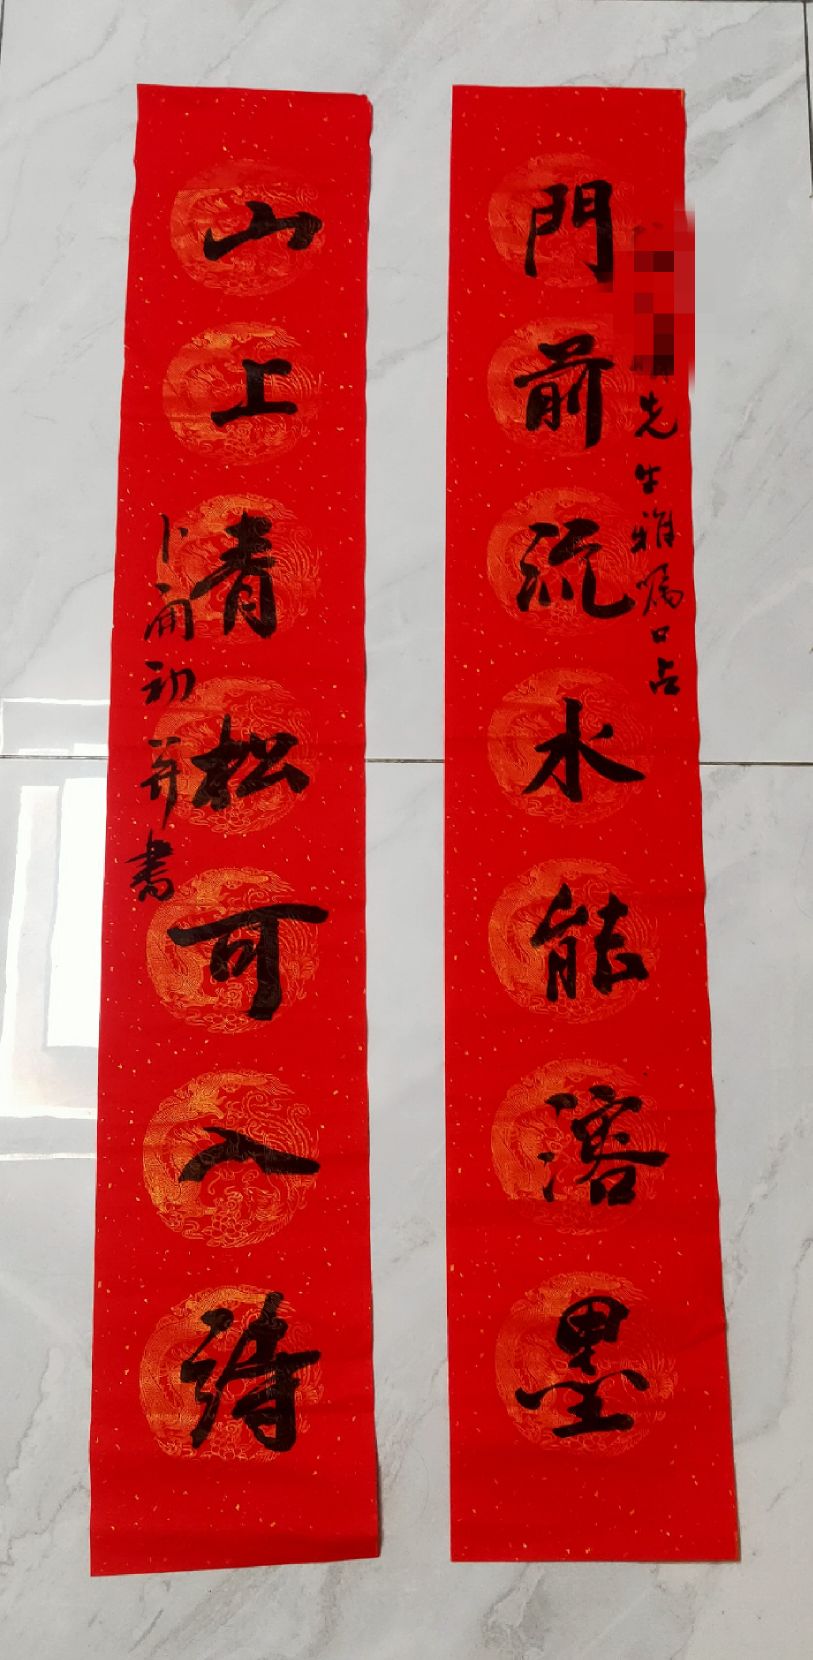 門前流水能溶墨
先生雅嘱口占
山上青松可入詩
卜甭初并書